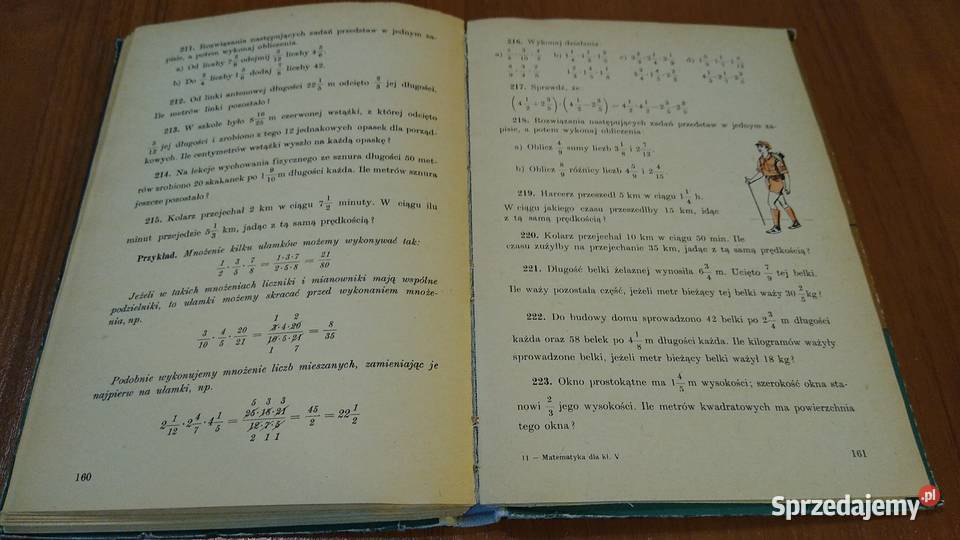 211. Rozwiązania następujących zadań przedstaw w jednym za-
pisie, a potem wykonaj obliczenia.
a) Od liczby odejmij liczby
b) Do liczby dodaj liczby 42.
212. Od linki antenowej długości 22 1/5 m odcięto jej długości.
Ile metrów linki pozostało?
213. W szkole było 5 16/25 m czerwonej wstążki, z której odcięto
5/12 jej długości i zrobiono z tego 12 jednakowych opasek dla porząd-
kowych. Ile centymetrów wstążki wyszło na każdą opaskę?
214. Na lekcje wychowania fizycznego ze sznura długości 50 met-
rów zrobiono 20 skakanek po 1 9/10 m długości każda. Ile metrów sznura
jeszcze pozostało?
215. Kolarz przejechał 2 km w ciągu 7 1/2 minuty. W ciągu ilu
minut przejedzie 5 1/3 km, jadąc z tą samą prędkością?
Przykład. Mnożenie kilku ułamków możemy wykonywać tak:
1/2 · 3/5 · 7/8 = 1·3·7/2·5·8 = 21/80
Jeżeli w takich mnożeniach liczniki i mianowniki mają wspólne
podzielniki, to ułamki możemy skracać przed wykonaniem mnoże-
nia, np.
1 2
3/10 · 4/5 · 20/21 = 3·4·20/10·5·21 = 8/35
1 7
Podobnie wykonujemy mnożenie liczb mieszanych, zamieniając je
najpierw na ułamki, np.
5 3 3
2 1/12 · 2 4/7 · 4 1/5 = 25·18·21/12·7·5 = 45/2 = 22 1/2
2 1 1
160
216. Wykonaj działania:
217. Sprawdź, że:
218. Rozwiązania następujących zadań przedstaw w jednym za-
pisie, a potem wykonaj obliczenia
a) Oblicz 4/9 sumy liczb 3 1/8 i 2 7/12.
b) Oblicz 8/9 różnicy liczb 4 5/9 i 2 4/15.
219. Harcerz przeszedł 5 km w ciągu 1 1/4 h.
W ciągu jakiego czasu przeszedłby 15 km, idąc
z tą samą prędkością?
220. Kolarz przejechał 10 km w ciągu 50 min. Ile
czasu zużyłby na przejechanie 35 km, jadąc z tą samą prędkością?
221. Długość belki żelaznej wynosiła 6 3/4 m. Ucięto 7/9 tej belki.
Ile waży pozostała część, jeżeli metr bieżący tej belki waży 30 2/5 kg?
222. Do budowy domu sprowadzono 42 belki po 2 3/4 m długości
każda oraz 58 belek po 4 1/8 m długości każda. Ile kilogramów ważyły
sprowadzone belki, jeżeli metr bieżący belki ważył 18 kg?
223. Okno prostokątne ma 1 4/5 m wysokości; szerokość okna sta-
nowi 2/3 jego wysokości. Ile metrów kwadratowych ma powierzchnia
tego okna?
11 — Matematyka dla kl. V
161
Sprzedajemy.pl